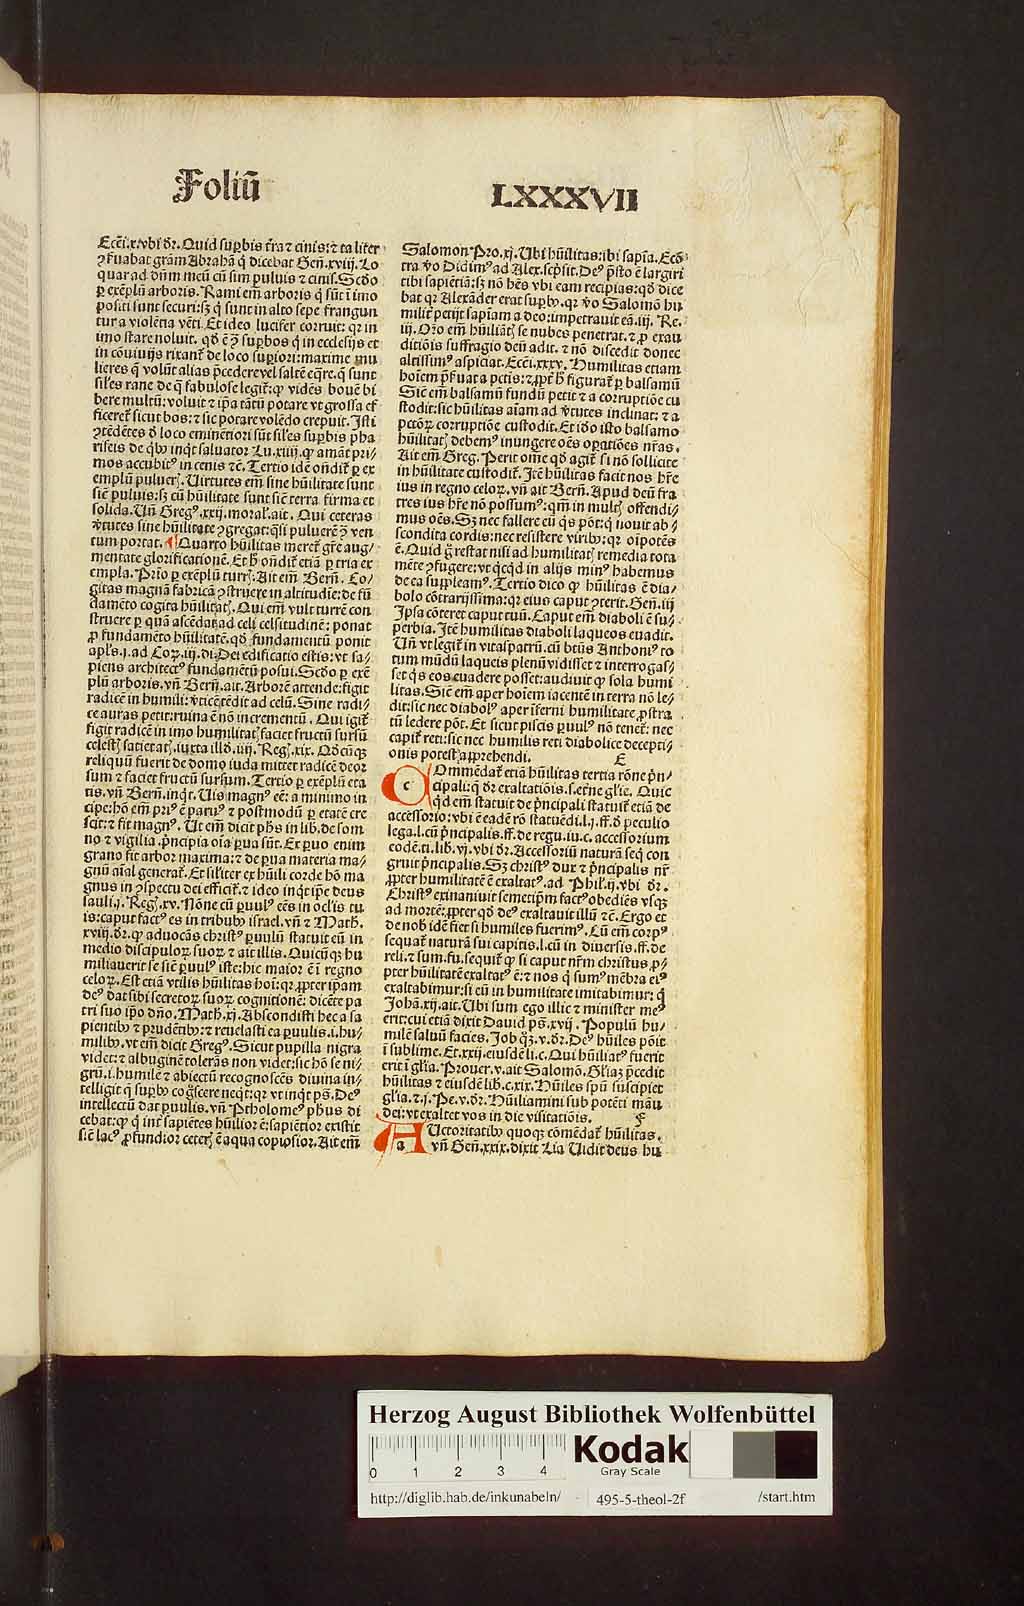 Foliū LXXXVII
Ecci.x.vbi dr̄. Quid supbis t̄ra ⁊ cinis: ⁊ ta liter
ꝯẜuabat gram Abrahā q̄ dicebat Geñ.xviij. Lo
quar ad dñm meū cū sim puluis ⁊ cinis. Scd̄o
ꝑ exēplū arboris. Rami em̄ arboris q̄ sūt ī imo
positi sunt securi: sꝫ q̄ sunt in alto sepe frangun
tur a violētia vēti. Et ideo lucifer corruit: qr in
imo stare noluit. qd̄ ē ꝯ̄ supbos q̄ in ecclesijs et
in cōuiuijs rixant̄ de loco supiori: maxime mu
lieres q̄ volūt alias p̄cedere vel saltē eq̄re. q̄ sunt
siles rane de q̄ fabulose legit̄: q̄ vidēs bouē bi
bere multū: voluit ⁊ ip̄a tātū potare vt grossa ef
ficeret̄ sicut bos: ⁊ sic potare volēdo crepuit. Isti
ꝯtēdētes d̄ loco eminētiori sūt siles supbis pha
riseis de q̄bꝫ inq̄t saluator Lu.xiiij. ꝙ amāt pri/
mos accubitꝰ in cenis ⁊c̄. Tertio idē oñdit̄ ꝑ ex
emplū pulueris. Virtutes em̄ sine hūilitate sunt
sic̄ puluis: sꝫ cū hūilitate sunt sic̄ terra firma et
solida. Vñ Gregꝰ.xxij.moral̄.ait. Qui ceteras
v̄tutes sine hūilitate ꝯgregat: q̄si puluerē ꝯ̄ ven
tum portat. ¶ Quarto hūilitas meret̄ gr̄e aug/
mentate glorificationē. Et h̄ oñdit̄ etiā ꝑ tria ex
empla. Prīo ꝑ exēplū turris. Ait em̄ Berñ. Co/
gitas magnā fabricā ꝯstruere in altitudīe: de fū
damēto cogita hūilitatis. Qui em̄ vult turrē con
struere ꝑ quā ascēdat ad celi celsitudinē: ponat
ꝓ fundamēto hūilitatē. qd̄ fundamentū ponit
apl̄s.j.ad Cor.iij.di. Dei edificatio estis: vt sa/
piens architectꝰ fundamētū posui. Scd̄o ꝑ exē
plū arboris. vñ Berñ.ait. Arborē attende: figit
radicē in humili: v̄ticē tēdit ad celū. Sine radi/
ce auras petit: ruina ē nō incrementū. Qui igit̄
figit radicē in imo humilitatis faciet fructū sursū
celestis satietatis. iuxta illd̄.iiij. Regꝫ.xix. Qd̄cūqꝫ
reliquū fuerit de domo iuda mittet radicē deor
sum ⁊ faciet fructū sursum. Tertio ꝑ exēplū eta
tis. vñ Berñ.inq̄t. Vis magnꝰ eē: a minimo in
cipe: hō em̄ priꝰ ē paruꝰ ⁊ postmodū ꝑ etatē cre
scit: ⁊ fit magnꝰ. Vt em̄ dicit ph̄s in lib. de som
no ⁊ vigilia. p̄ncipia oīa pua sūt. Ex puo enim
grano fit arbor maxima: ⁊ de pua materia ma/
gnū aīal generat̄. Et silīter ex hūili corde hō ma
gnus in ꝯspectu dei efficit̄. ⁊ ideo inq̄t ip̄e deus
sauli.j. Regꝫ.xv. Nōne cū puulꝰ eēs in ocl̄is tu
is: caput factꝰ es in tribubꝫ israel. vñ ⁊ Math.
xviij.dr̄. ꝙ aduocās christꝰ puulū statuit eū in
medio discipuloꝝ suoꝝ ⁊ ait illis. Quicūqꝫ hu
miliauerit se sic̄ puulꝰ iste: hic maior ē ī regno
celoꝝ. Est etiā vtilis hūilitas hoī: qr ꝓpter ipam
deꝰ dat sibi secretoꝝ suoꝝ cognitionē: dicēte pa
tri suo ip̄o dño. Math.xj. Abscondisti hec a sa
pientibꝫ ⁊ prudētibꝫ: ⁊ reuelasti ea puulis.i.hu/
milibꝫ. vt em̄ dicit Gregꝰ. Sicut pupilla nigra
videt: ⁊ albuginē tolerās non videt: sic hō se ni/
grū.i.humilē ⁊ abiectū recognoscēs diuina in/
telligit q̄ supbꝫ cog̃scere neqt̄: qr vt inq̄t ps̄. Deꝰ
intellectū dat puulis. vñ Ptholomeꝰ ph̄us di
cebat: ꝙ q̄ int̄ sapiētes hūilior ē: sapiētior existit
sic̄ lacꝰ ꝓfundior ceteris ē aqua copiosior. Ait em̄
Salomon Pro.xj. Vbi hūilitas: ibi sapīa. Ecō/
tra v̄o Didimꝰ ad Alex. sc̄psit. Deꝰ p̄sto ē largiri
tibi sapiētiā: sꝫ nō hēs vbi eam recipias: qd̄ dice
bat qr Alexāder erat supbꝫ. qr v̄o Salomō hu
milit̄ petijt sapīam a deo: impetrauit eā.iij. Re.
iij. Or̄o em̄ hūiliātis se nubes penetrat. ⁊ ꝓ exau
ditiōis suffragio deū adit. ⁊ nō discedit donec
altissimꝰ aspiciat. Ecci.xxxv. Humilitas etiam
hoīem p̄ẜuat a pctis: ⁊ ꝓpt̄ h̄ figurat̄ ꝑ balsamū
Sic̄ em̄ balsamū fundū petit ⁊ a corruptiōe cu
stodit: sic hūilitas aīam ad v̄tutes inclinat: ⁊ a
pctoꝝ corruptiōe custodit. Et iō isto balsamo
hūilitatis debemꝰ inungere oēs opatiōes nr̄as.
Ait em̄ Greg. Perit om̄e qd̄ agit̄ si nō sollicite
in hūilitate custodit̄. Itē hūilitas facit nos hr̄e
ius in regno celoꝝ. vñ ait Berñ. Apud deū fra
tres ius hr̄e nō possumꝰ: qm̄ in multis offendi/
mus oēs. Sꝫ nec fallere eū q̄s pōt: q̄ nouit ab/
scondita cordis: nec resistere viribꝫ: qr oīpotēs
ē. Quid g̃ restat nisi ad humilitatis remedia tota
mēte ꝯfugere: vt qcqd in alijs minꝰ habemus
de ea suppleamꝰ. Tertio dico ꝙ hūilitas ē dia/
bolo cōtrarijssima: qr eius caput ꝯterit. Geñ.iij
Ipsa cōteret caput tuū. Caput em̄ diaboli ē su/
perbia. Itē humilitas diaboli laqueos euadit.
Vñ vt legit̄ in vitaspatrū. cū btūs Anthoniꝰ to
tum mūdū laqueis plenū vidisset ⁊ interrogas/
set q̄s eos euadere posset: audiuit ꝙ sola humi
litas. Sic̄ em̄ aper hoīem iacentē in terra nō le/
dit: sic nec diabolꝰ aper īferni humilitate ꝓstra
tū ledere pōt. Et sicut piscis puulꝰ nō tenet̄: nec
capit̄ reti: sic nec humilis reti diabolice decepti/
onis potest apprehendi. E
Ommēdat̄ etiā hūilitas tertia rōne p̄n/
c cipali: q̄ dr̄ exaltatiōis.s.et̄ne gl̄ie. Quic
qd em̄ statuit̄ de p̄ncipali statuit̄ etiā de
accessorio: vbi ē eadē rō statuēdi.l.j.ff.d̄ peculio
lega.l.cū p̄ncipalis.ff. de regu.iu.c. accessorium
codē.ti.lib.vj.vbi dr̄. Accessoriū naturā seq̄ con
gruit p̄ncipalis. Sꝫ christꝰ dux ⁊ p̄ncipalis nr̄
ꝓpter humilitatē ē exaltatꝰ. ad Phil̄.ij.vbi dr̄.
Christꝰ exinaniuit semetip̄m factꝰ obediēs vsqꝫ
ad mortē: ꝓpter qd̄ deꝰ exaltauit illū ⁊c̄. Ergo et
de nob̄ idē fiet si humiles fuerimꝰ. Cū em̄ corpꝰ
sequat̄ naturā sui capitis.l.cū in diuersis.ff.de
reli.⁊ sum.fu. sequit̄ ꝙ si caput nr̄m christus ꝓ/
pter hūilitatē exaltatꝰ ē: ⁊ nos q̄ sumꝰ mēbra eiꝰ
exaltabimur: si eū in humilitate imitabimur: q̄
Johā.xij.ait. Vbi sum ego illic ⁊ minister meꝰ
erit: cui etiā dixit Dauid ps̄.xvij. Populū hu/
milē saluū facies. Job qꝫ.v.dr̄. Deꝰ hūiles pōit
ī sublime. Et.xxij.eiusdē li.c. Qui hūiliatꝰ fuerit
erit ī gl̄ia. Prouer.v.ait Salomō. Gl̄iaꝫ p̄cedit
hūilitas ⁊ eiusdē lib.c.xix. Hūiles spū suscipiet
gl̄ia.⁊.j. Pe.v.dr̄. Hūiliamini sub potēti manu
dei: vt exaltet vos in die visitatiōis. F
Uctoritatibꝫ quoqꝫ cōmēdat̄ hūilitas.
a vñ Geñ.xxix. dixit Lia Vidit deus hu
Herzog August Bibliothek Wolfenbüttel
0 1 2 3 4
Kodak
Gray Scale
http://diglib.hab.de/inkunabeln/ - 495-5-theol-2f /start.htm